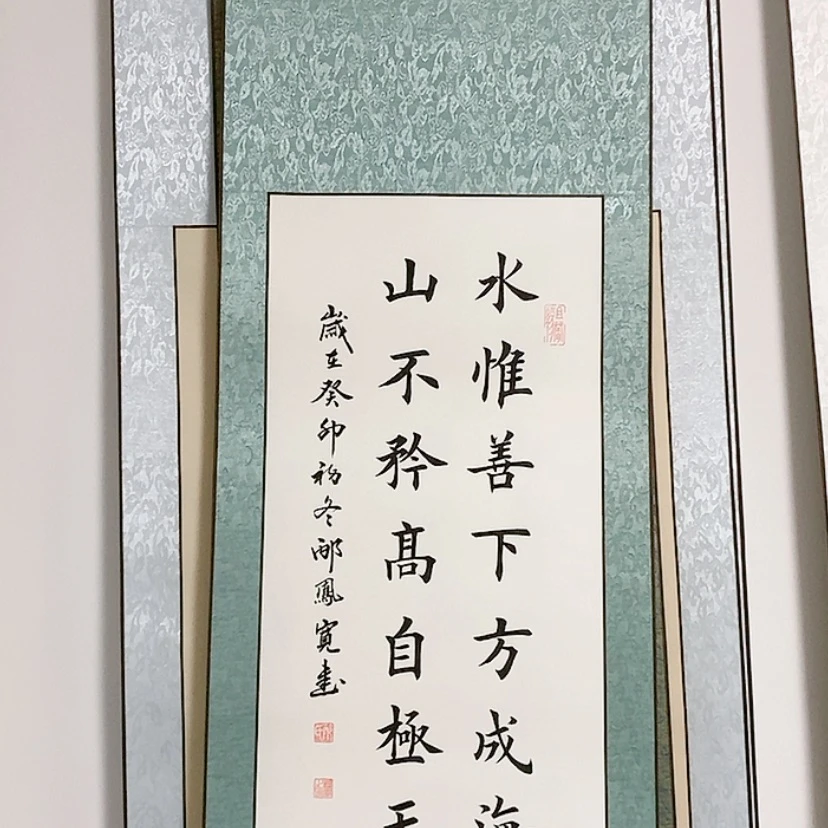 水惟善下方成海
山不矜高自極天
歲在癸卯初冬邴鳳寬書